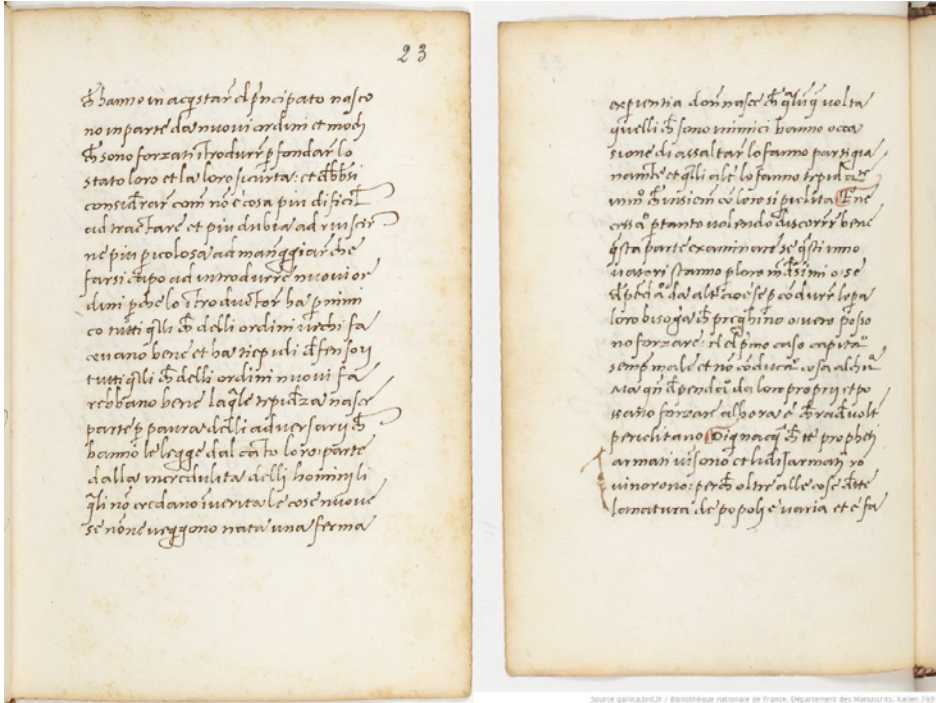 23
ch̄ hanno in acq̄star el p̄ncipato nasco
no in parte da nuovi ordini et modj
ch̄ sono forzati ītrodurr̄ p̱ fondar lo
stato loro et la loro sicurta: et
considr̄ar com̄ nō e cosa piu dificil
ad tractare et piu dubia ad riuscir
ne piu p̱icolosa ad manegḡiar che
farsi capo ad introdurre nuovi or
dini p̱che lo ītroductor̄ ha p̱ nimi
co tutti q̄lli ch̄ delli ordini vechi fa
ceuano bene et ha tiepidi d̄fensorj
tutti q̄lli ch̄ delli ordini nuovi fa
rebbano bene la q̄le trepid̄za nasce
parte p̱ paura delli adversarij ch̄
hanno le legge dal cāto loro: parte
dalla incredulita delli hominj li
q̄li nō credano ī verita le cose nuove
se nō ne veggono nata una ferma
experientia donn̄ nasce ch̄ q̄luq̄ volta
quelli ch̄ sono inimici hanno occa
sione di assaltar lo fanno partigia
namte et q̄lli altri lo fanno trepida
ch̄ insiem̄ cō loro si piclita E ne
p̱tanto volendo discorrer̄ bene
q̄sta parte examinare se q̄sti inno
vatori stanno p̱ loro md̄simi o se
d̄pēdā da altri cioe se p̱ cōdurr̄ lop̱a
loro bisogna ch̄ preghino o vero posso
no forzare: el p̄mo caso capitā
semp̱ male et nō cōducā cosa alchūa
ma qn̄ d̄pendā da loro proprij et po
ssano forzare alhora e ch̄ rad̄ volt
periclitano Di q̄ nacq̄ ch̄ tt̄ prophetj
armati visono et li disarmatj ro
vinorono: perch̄ oltr̄ alle cose d̄tte
la natura de popolj e varia et e fa
Source gallica.bnf.fr / Bibliothèque nationale de France. Département des Manuscrits. Italien 709